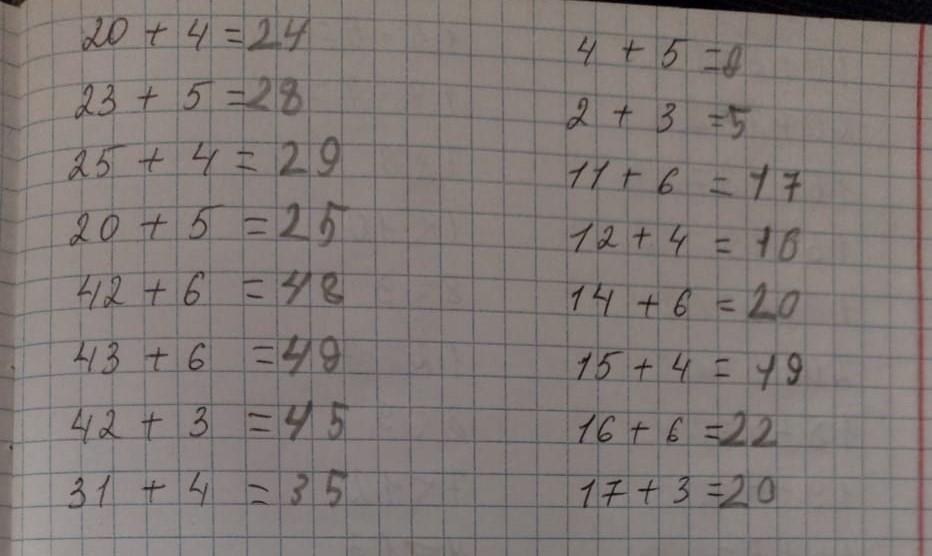 20 + 4 = 24
23 + 5 = 28
25 + 4 = 29
20 + 5 = 25
42 + 6 = 48
43 + 6 = 49
42 + 3 = 45
31 + 4 = 35
4 + 5 =
2 + 3 = 5
11 + 6 = 17
12 + 4 = 16
14 + 6 = 20
15 + 4 = 19
16 + 6 = 22
17 + 3 = 20